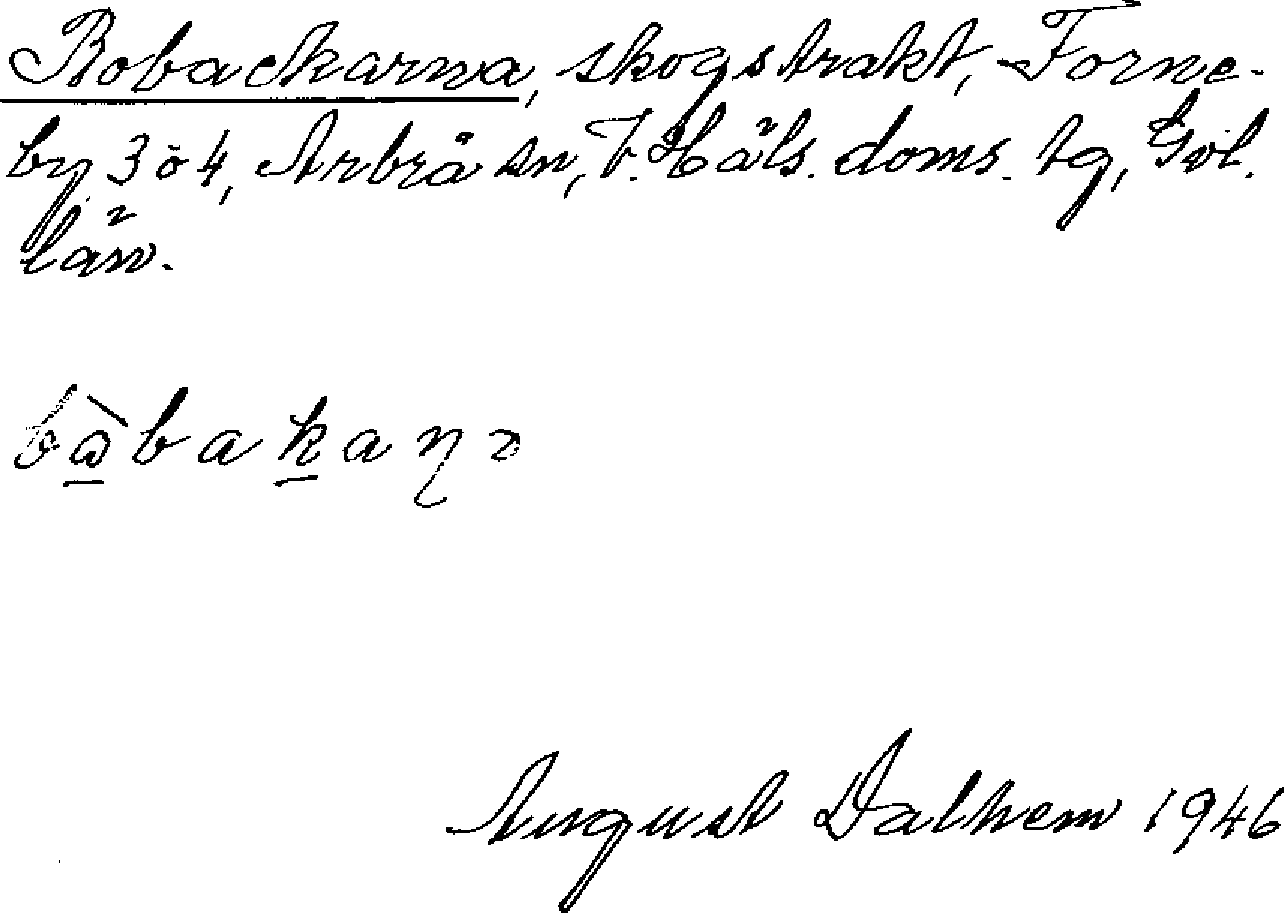 Bobackarna, skogstrakt, Forne-
by 3 o 4, Arbrå sn, V. Häls. doms. tg, Gvl.
län.
bὰbakaꞃə
August Dalhem 1946